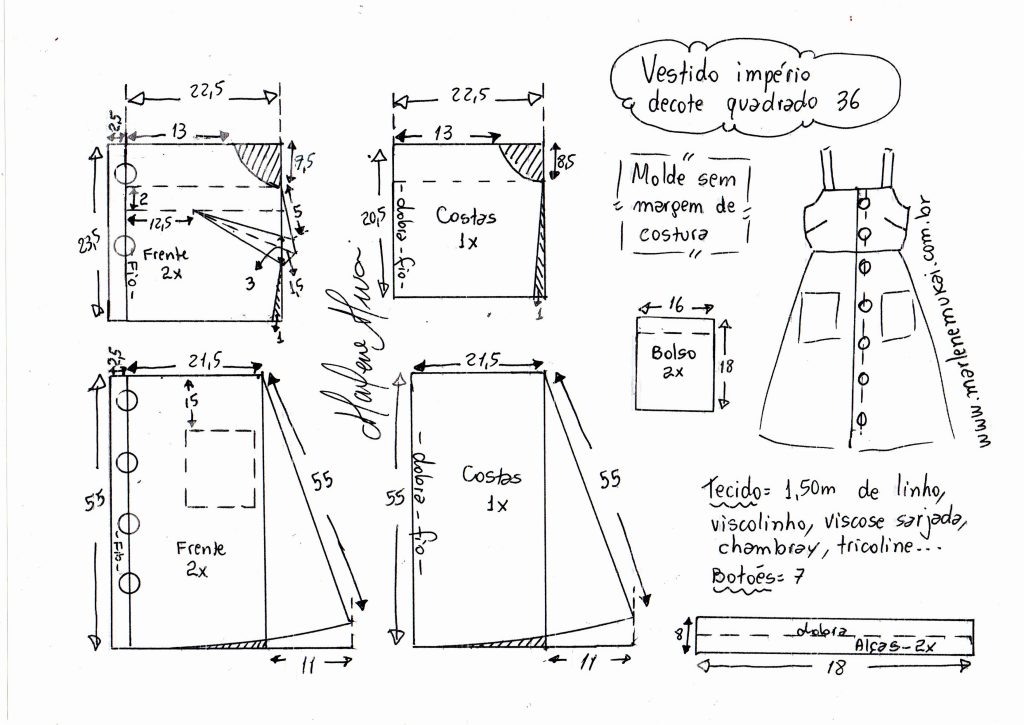 Vestido império
decote quadrado 36
Molde sem
margem de
costura
www.marlenemukai.com.br
22,5
2,5
13
9,5
23,5
2
5
12,5
Frente
2x
Fio
3
1,5
1
22,5
13
8,5
20,5
dobra - fio
Costas
1x
1
16
Bolso
2x
18
21,5
2,5
5
55
55
Fio
Frente
2x
11
21,5
55
dobra - fio
Costas
1x
55
11
Tecido= 1,50m de linho,
viscolinho, viscose sarjada,
chambray, tricoline...
Botões= 7
8
dobra
Alças-2x
18